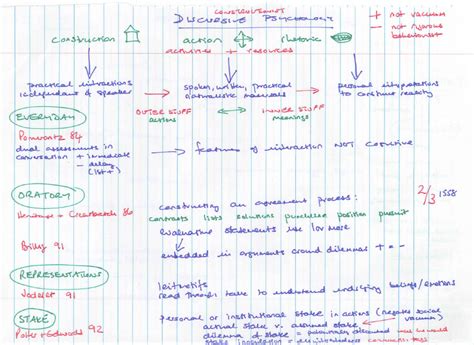 CONSTRUCTIONIST
DISCURSIVE PSYCHOLOGY
+ not vacuum
- not rigorous
behaviourist
construction
action
rhetoric
activities + resources
practical interactions
independent of speaker
spoken, written, practical
personal interpretations
to construe reality
EVERYDAY
OUTER STUFF
actions
INNER STUFF
meanings
Pomerantz 84
dual assessments in
conversation + immediate
- delay
features of interaction NOT cognitive
ORATORY
Heritage + Greatbatch 86
constructing an agreement process:
contrasts lists solutions position pursuit
evaluative statements use 1 or more
2/3 1558
Billig 91
embedded in arguments around dilemmas + = -
REPRESENTATIONS
91
leitmotifs
read through talk to understand underlying beliefs/emotions
STAKE
Potter + Edwards 92
personal or institutional stake in actions (negates social
vacuum)
actual stake v. assumed stake
dilemma of stake =
stake inoculation =